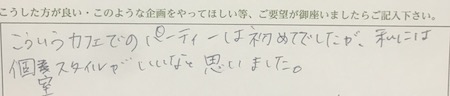 こうした方が良い・このような企画をやってほしい等、ご要望が御座いましたらご記入下さい。
こういうカフェでのパーティーは初めてでしたが、私には
個室スタイルがいいなと思いました。